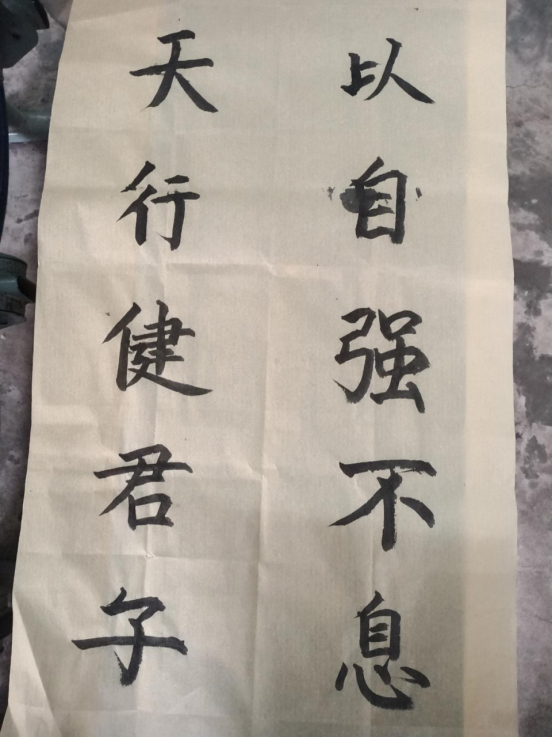 天行健君子
以自强不息